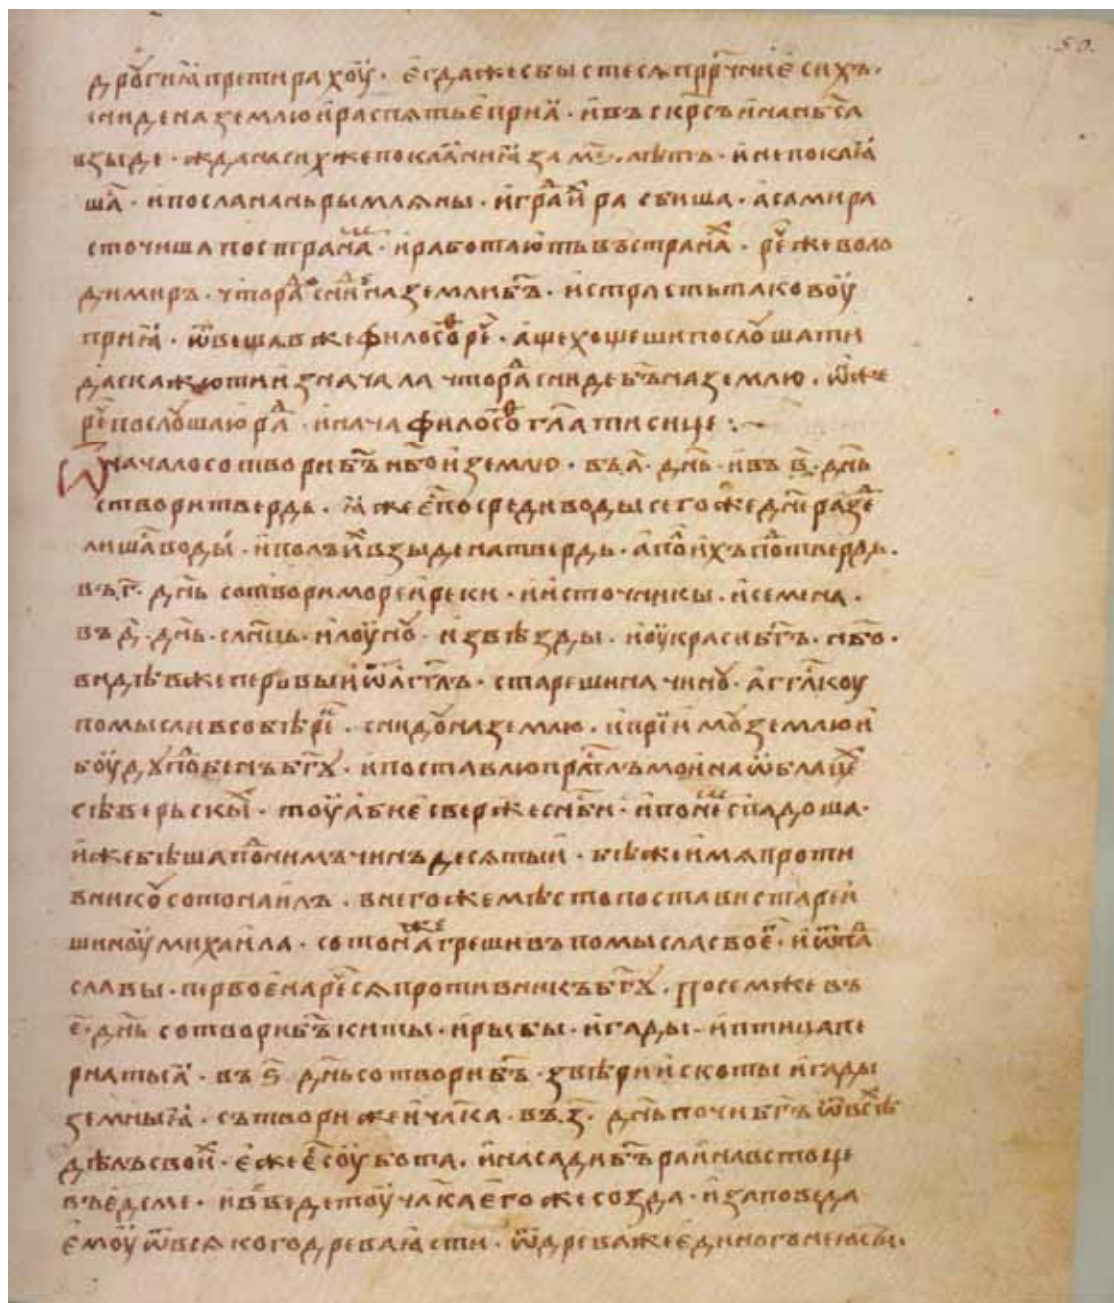 50.
дрꙋгиꙗ претирахоу҆ · е҆гда же сбыстесѧ пррⷱ҇ние҆ сихъ ·
сниде на землю и҆ распѧтье҆ приꙗ · и҆ въскрⷭ҇ъ и҆ на нб҃са
взыде · ждана сихже покаꙗниꙗ за м҃ѕ · лѣтъ · и҆ не покаꙗ
шаⷭ҇ · и҆ посла на нь рымлѧны · и҆ граⷣ и҆хⷯ расбиша · а҆ самиⷯ ра
сточиша по странаⷨ · и҆ работають въ странаⷯ · реⷱ҇ же воло
димиръ · что раⷣ сниⷣде на земли бг҃ъ · и҆ стрⷭ҇ть таковоу
приꙗ · ѿвещав же филосоⷴ реⷱ҇ · а҆ще хощеши послꙋшати
да скажю ти и҆знача ла что раⷣ сниде бг҃ъ на землю · ѡⷩ҇ же
реⷱ҇ послꙋшаю раⷣ · и҆ нача филосоⷴ гл҃ати сице :~
Ѿначало сотвори бг҃ъ нб҃о и҆ землю · въ а҃ · дн҃ь · и҆ въ в҃ · дн҃ь
створи твердь · ꙗ҆же еⷭ҇ посреди воды сего же дн҃е разⷣе
лишаⷭ҇ воды · и҆ полъ и҆хⷯ взыде на твердь · а҆ поⷧ и҆хъ поⷣ твердь ·
въ г҃ · дн҃ь сотвори море и҆ реки · и҆ и҆сточники · и҆ семена ·
въ д҃ · дн҃ь · слн҃ць · и҆ лоунꙋ · и҆ звѣзды · и҆ оу҆краси бг҃ъ · нб҃о ·
видѣв же первыи ѿ а҆гг҃лъ · старешина чинꙋ · а҆гг҃лкоу
помысли в собѣ реⷱ҇ · снидꙋ на землю · и҆ прии҆мꙋ землю и҆
боудꙋ поⷣбенъ бг҃ꙋ · и҆ поставлю прⷭ҇тлъ мои на ѡ҆блацеⷯ
сѣверьскыⷯ · тоу а҆бие҆ сверже с нб҃си · и҆ по неⷨ спадоша ·
и҆же бѣша поⷣ нимъ чинъ десѧтыи · бѣ же и҆мѧ проти
вникꙋ сотонаилъ · в него же мѣсто постави старѣи
шиноу михаила · сотона же грешивъ помысла своеⷢ҇ · и҆ ѿпаⷣ
славы · первое҆ нареⷱ҇сѧ противникъ бг҃ꙋ · Посем же въ
е҃ · дн҃ь сотвори бг҃ъ киты · и҆ рыбы · и҆ гады · и҆ птица пе
рнатыꙗ · въ ѕ҃ дн҃ь сотвори бг҃ъ · звѣри и҆ скоты и҆ гады
земныꙗ · сътвори же и҆ чл҃ка · въ з҃ · дн҃ь почи бг҃ъ ѿ всⷯѣ
дѣлъ своиⷯ · е҆же еⷭ҇ соубота · и҆ насади бг҃ъ раи на встоце
въ е҆деме · и҆ введе тоу чл҃ка е҆го же созда · и҆ заповѣда
е҆моу ѿ всѧкого древа ꙗ҆сти · ѿ древа же е҆диного не ꙗ҆сти ·